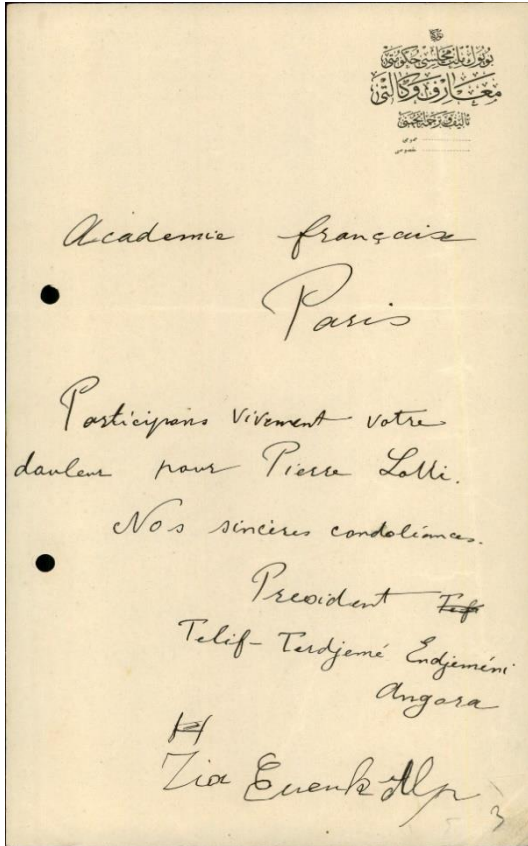 بویوك ملت مجلسی حکومتی
معارف وکالتی
تألیف و ترجمه انجمنی
عمومی
خصوصی
Académie française
Paris
Participons vivement votre
douleur pour Pierre Lotti.
Nos sincères condoléances.
President
Telif-Terdjemé Endjeméni
Angora
Zia Gueuk Alp
3